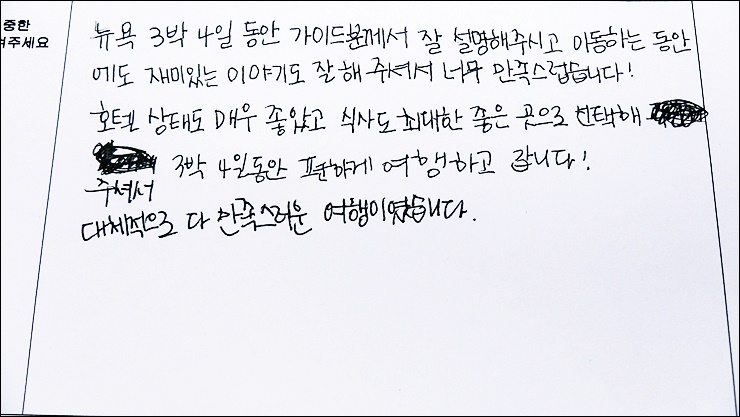 중한
켜주세요
뉴욕 3박 4일 동안 가이드분께서 잘 설명해주시고 이동하는 동안
에도 재미있는 이야기도 잘 해 주셔서 너무 만족스럽습니다!
호텔 상태도 매우 좋았고 식사도 최대한 좋은 곳으로 선택해
주셔서 3박 4일동안 편하게 여행하고 갑니다!
대체적으로 다 만족스러운 여행이였습니다.